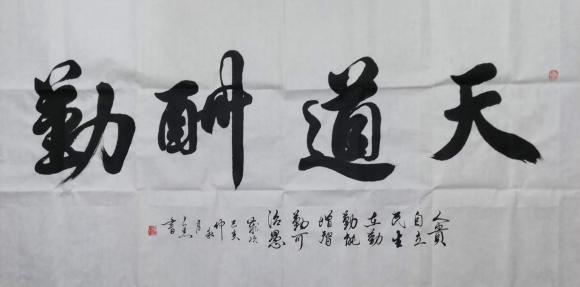 天道酬勤
人貴
自立
民生
在勤
勤能
增智
勤可
治愚
歲次
己亥
仲
秋
月
書